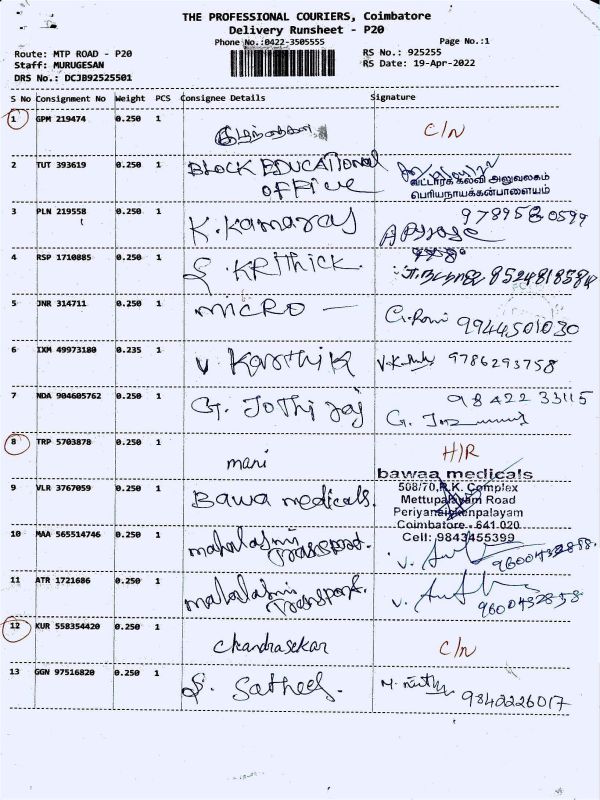 THE PROFESSIONAL COURIERS, Coimbatore
Delivery Runsheet - P20
Phone No.:0422-3505555
Page No.:1
Route: MTP ROAD - P20
RS No.: 925255
Staff: MURUGESAN
RS Date: 19-Apr-2022
DRS No.: DCJB92525501
S No Consignment No Weight PCS Consignee Details Signature
1 GPM 219474 0.250 1 C/N
2 TUT 393619 0.250 1 BLOCK EDUCATIONAL
OFFICE
வட்டாரக் கல்வி அலுவலகம்
பெரியநாயக்கன்பாளையம்
3 PLN 219558 0.250 1 K. Kamaraj
4 RSP 1710885 0.250 1 S. KRithick. 8524818584
5 JNR 314711 0.250 1 micRO — G. Rami 9944501030
6 IXM 49973180 0.235 1 V. Karthik 9786293758
7 NDA 904605762 0.250 1 G. Jothi raj 98422 33115
8 TRP 5703878 0.250 1 mani H/R
bawaa medicals
9 VLR 3767059 0.250 1 Bawa medicals.
508/70, R.K. Complex
Mettupalayam Road
Periyanaickenpalayam
Coimbatore - 641 020
Cell: 9843455399
10 MAA 565514746 0.250 1 mahalasmi
Transport. 9600432858
11 ATR 1721686 0.250 1 mahalasmi
Transport. 9600432858
12 KUR 558354420 0.250 1 chandrasekar C/N
13 GGN 97516820 0.250 1 S. Sathees. 9840226017